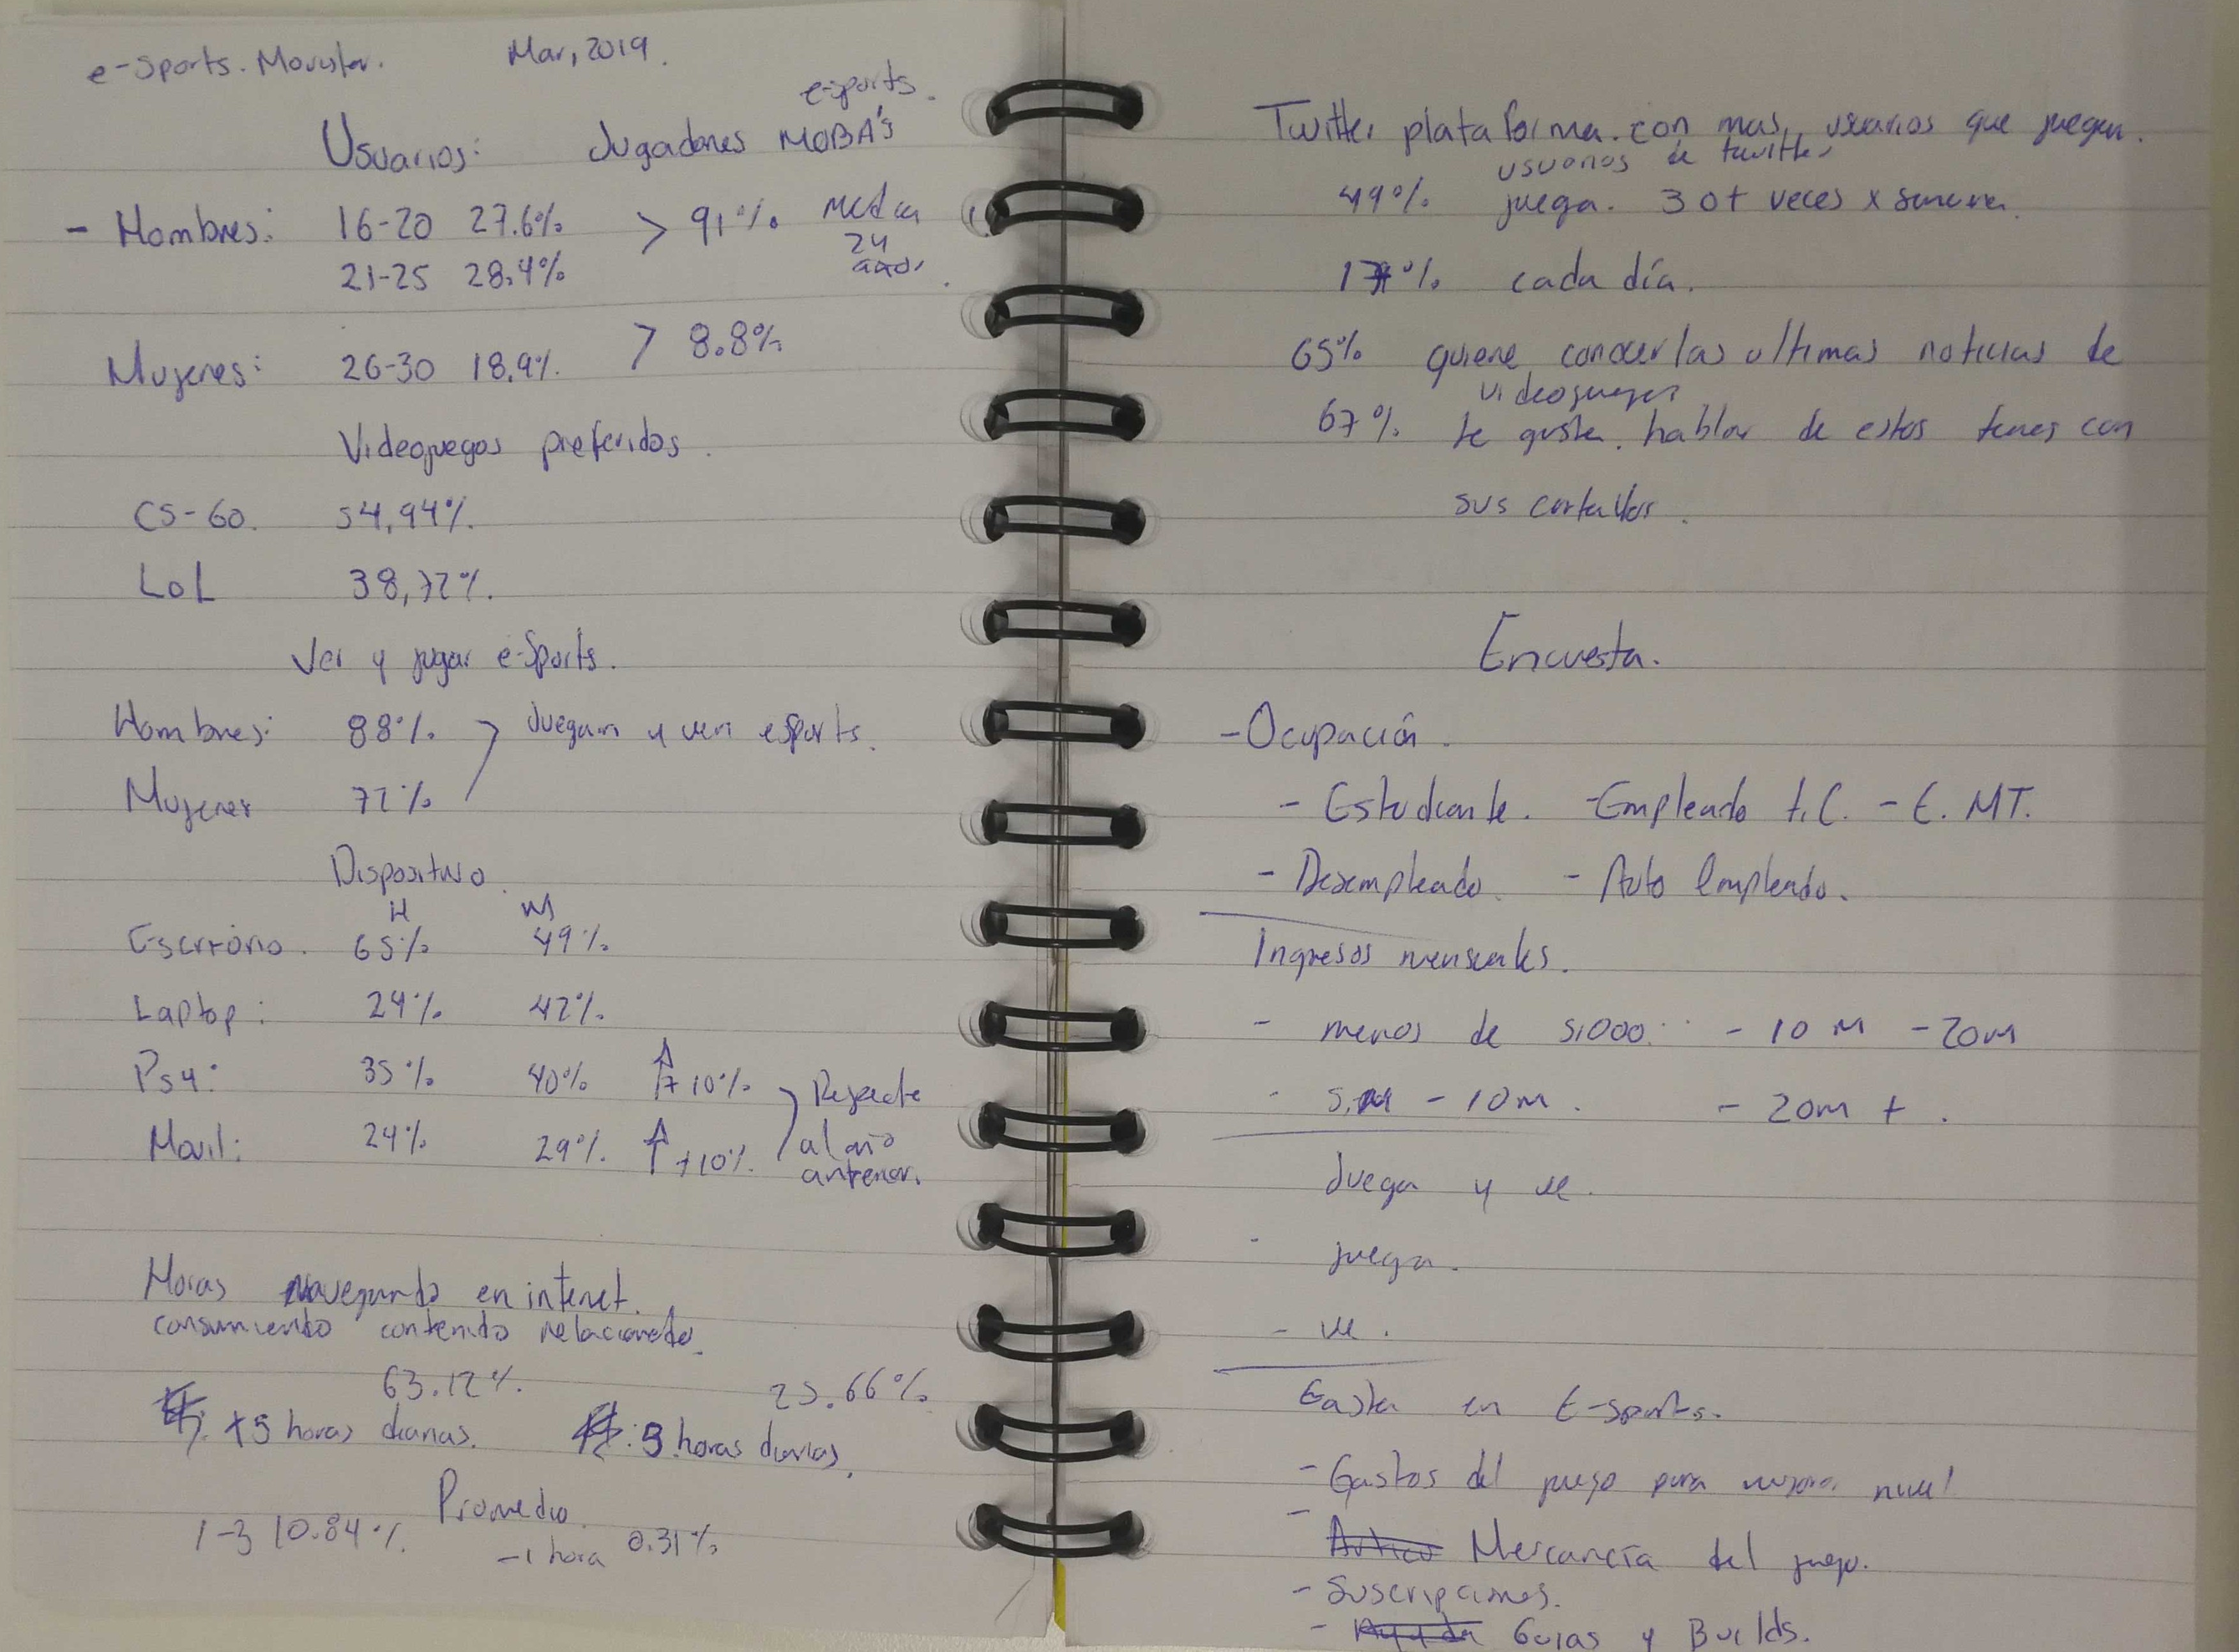 e-sports. Movistar. Mar, 2019.
e-sports.
Usuarios: Jugadores MOBA's
- Hombres: 16-20 27.6% > 91% media
21-25 28.4% 24
años.
Mujeres: 26-30 18.9% > 8.8%
Videojuegos preferidos.
CS-GO. 54,94%.
LoL 38,72%.
Ver y jugar e-Sports.
Hombres: 88% Juegan y ven esports.
Mujeres 72%
Dispositivo.
H M
Escritorio. 65% 49%
Laptop: 24% 42%
Ps4: 35% 40% +10% Respecto
Movil: 24% 29% +10% al año
anterior.
Horas navegando en internet.
consumiendo contenido relacionado.
63.12% 25.66%
+5 horas diarias. : 5 horas diarias.
Promedio
1-3 10.84% -1 hora 0.31%
Twitter plataforma con mas usuarios que juegan.
usuarios de twitter
49% juega. 3 o + veces x semana.
17% cada día.
65% quiere conocer las ultimas noticias de
videojuegos
67% le gusta hablar de estos temas con
sus
Encuesta.
- Ocupación.
- Estudiante. - Empleado t.C. - E. MT.
- Desempleado. - Auto Empleado.
Ingresos mensuales.
- menos de 5,000. - 10 M - 20M
- 5.M - 10M. - 20M +.
Juega y ve.
- juega.
- ve.
Gasta en E-sports.
- Gastos del juego para mejorar nivel
- Mercancía del juego.
- Suscripciones.
- Guias y Builds.